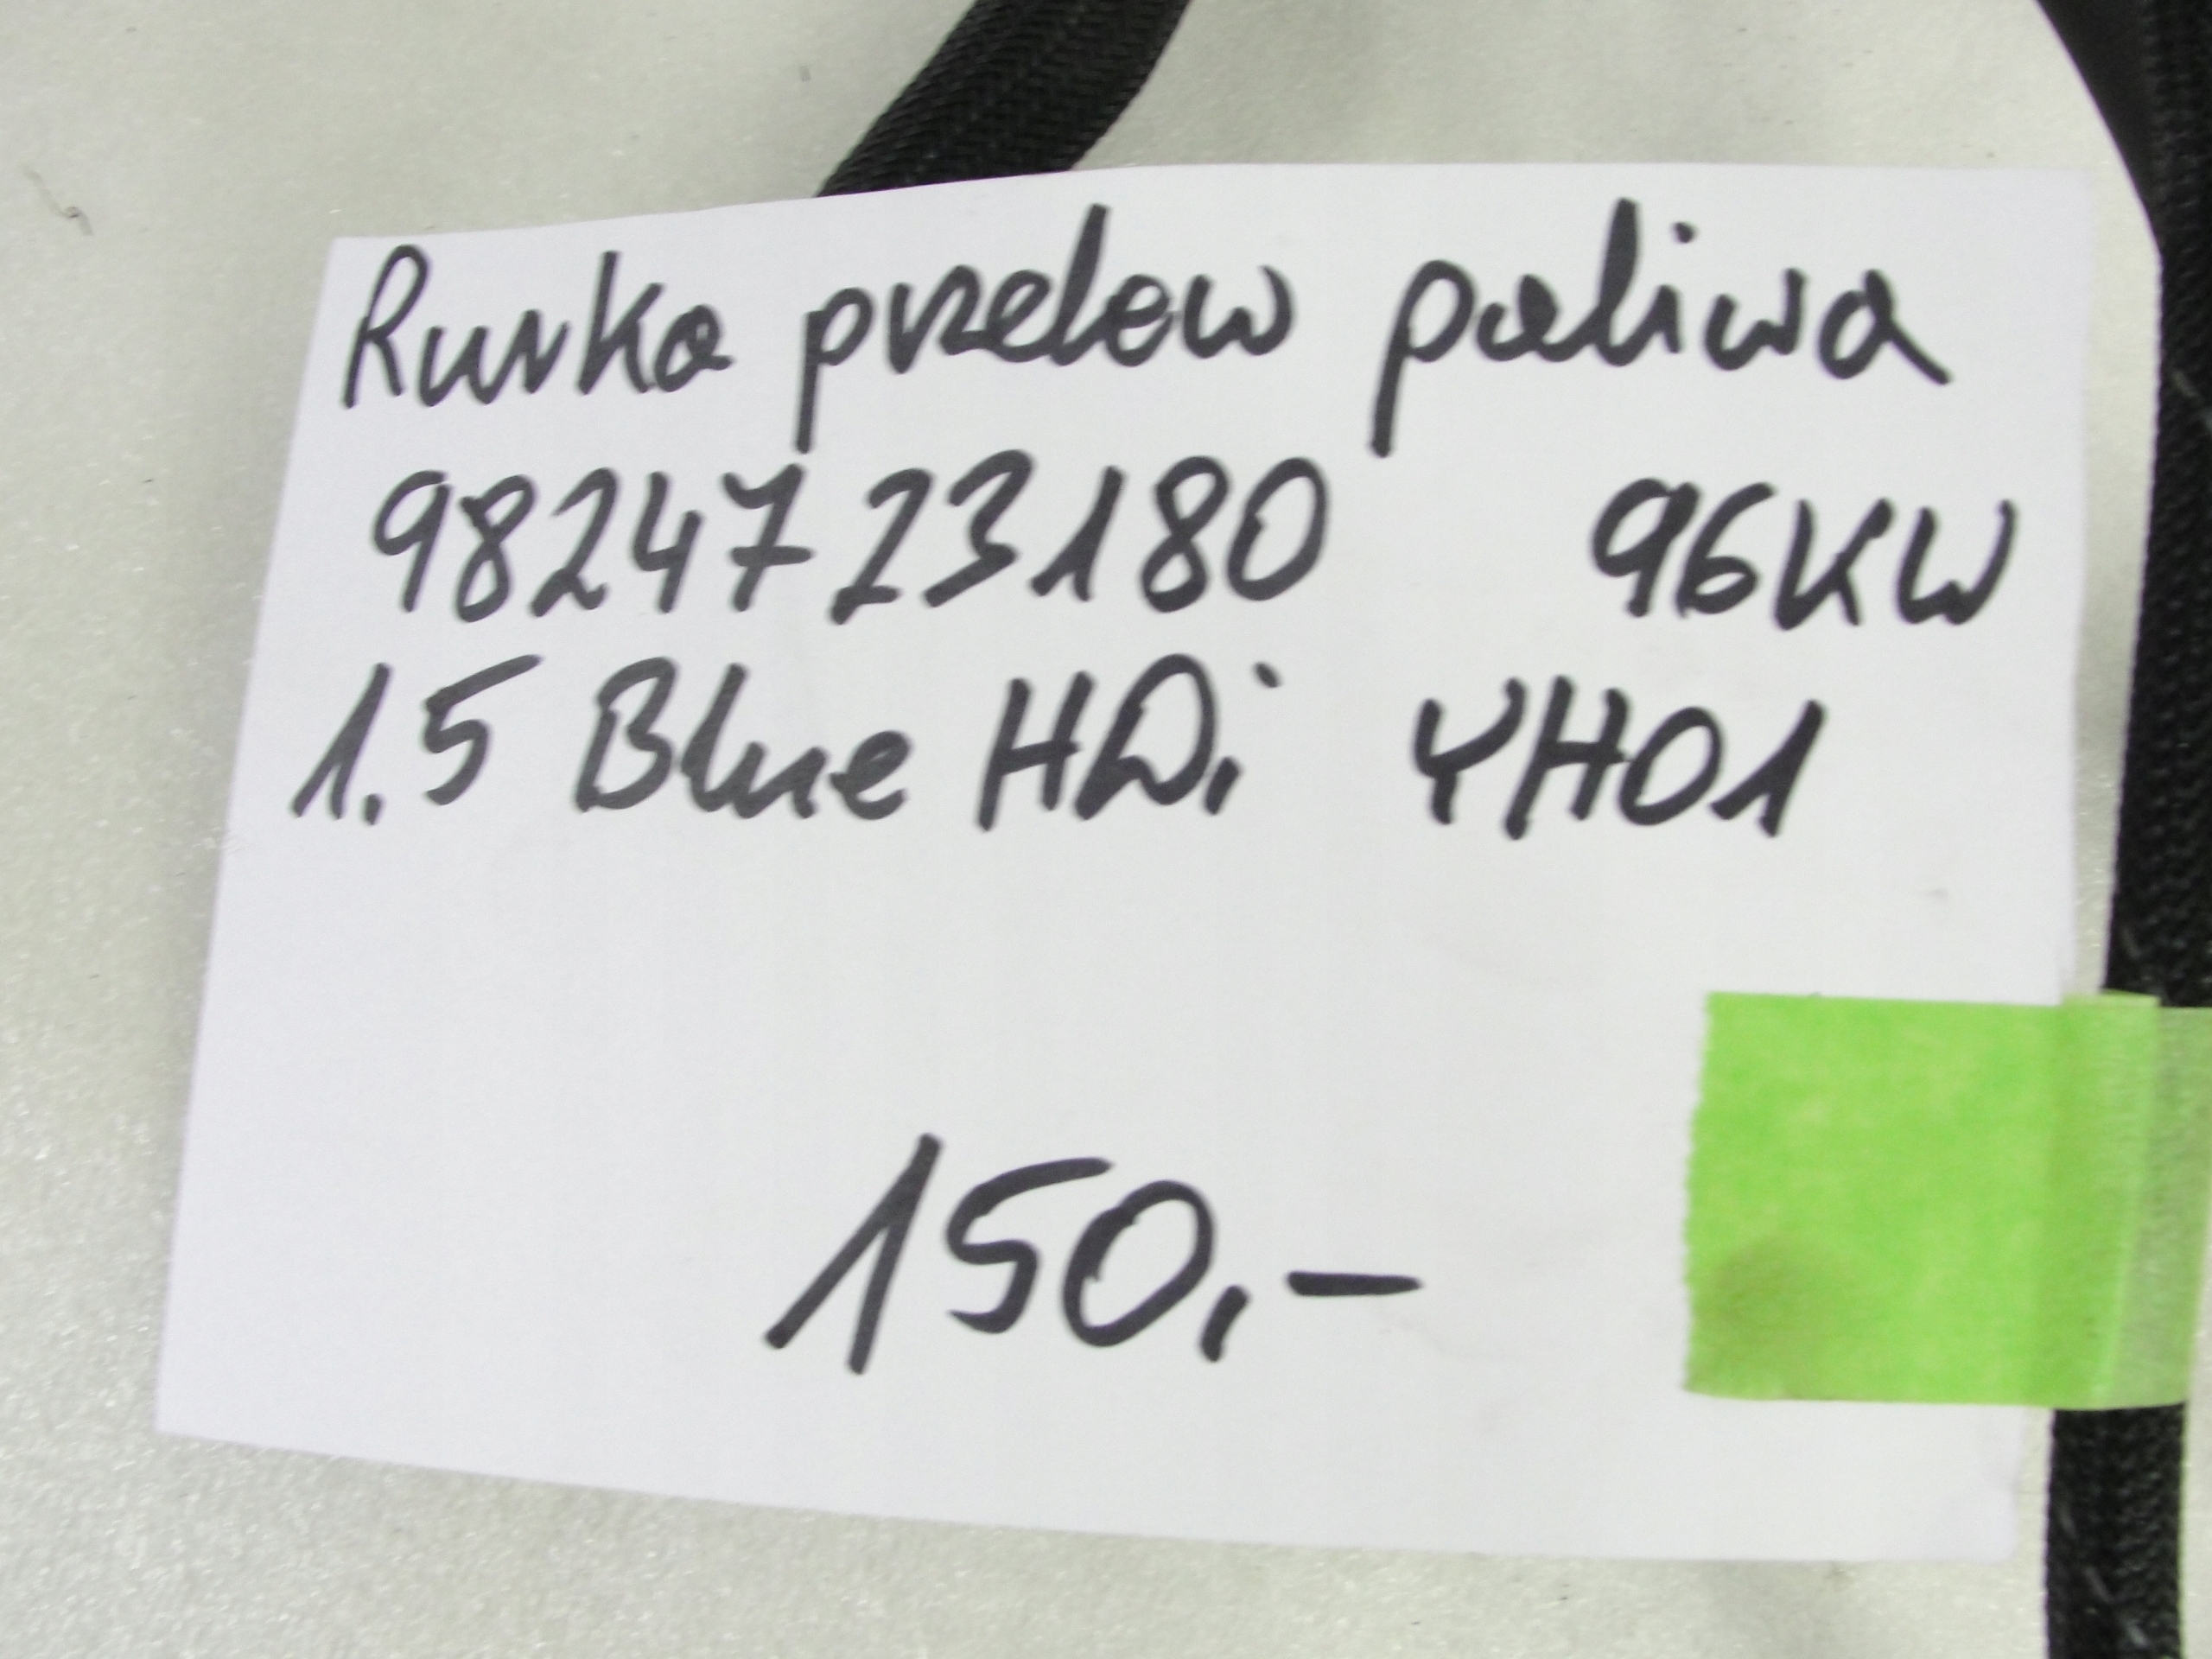 Rurka przelew paliwa
9824723180 96KW
1.5 Blue HDi YH01
150,-